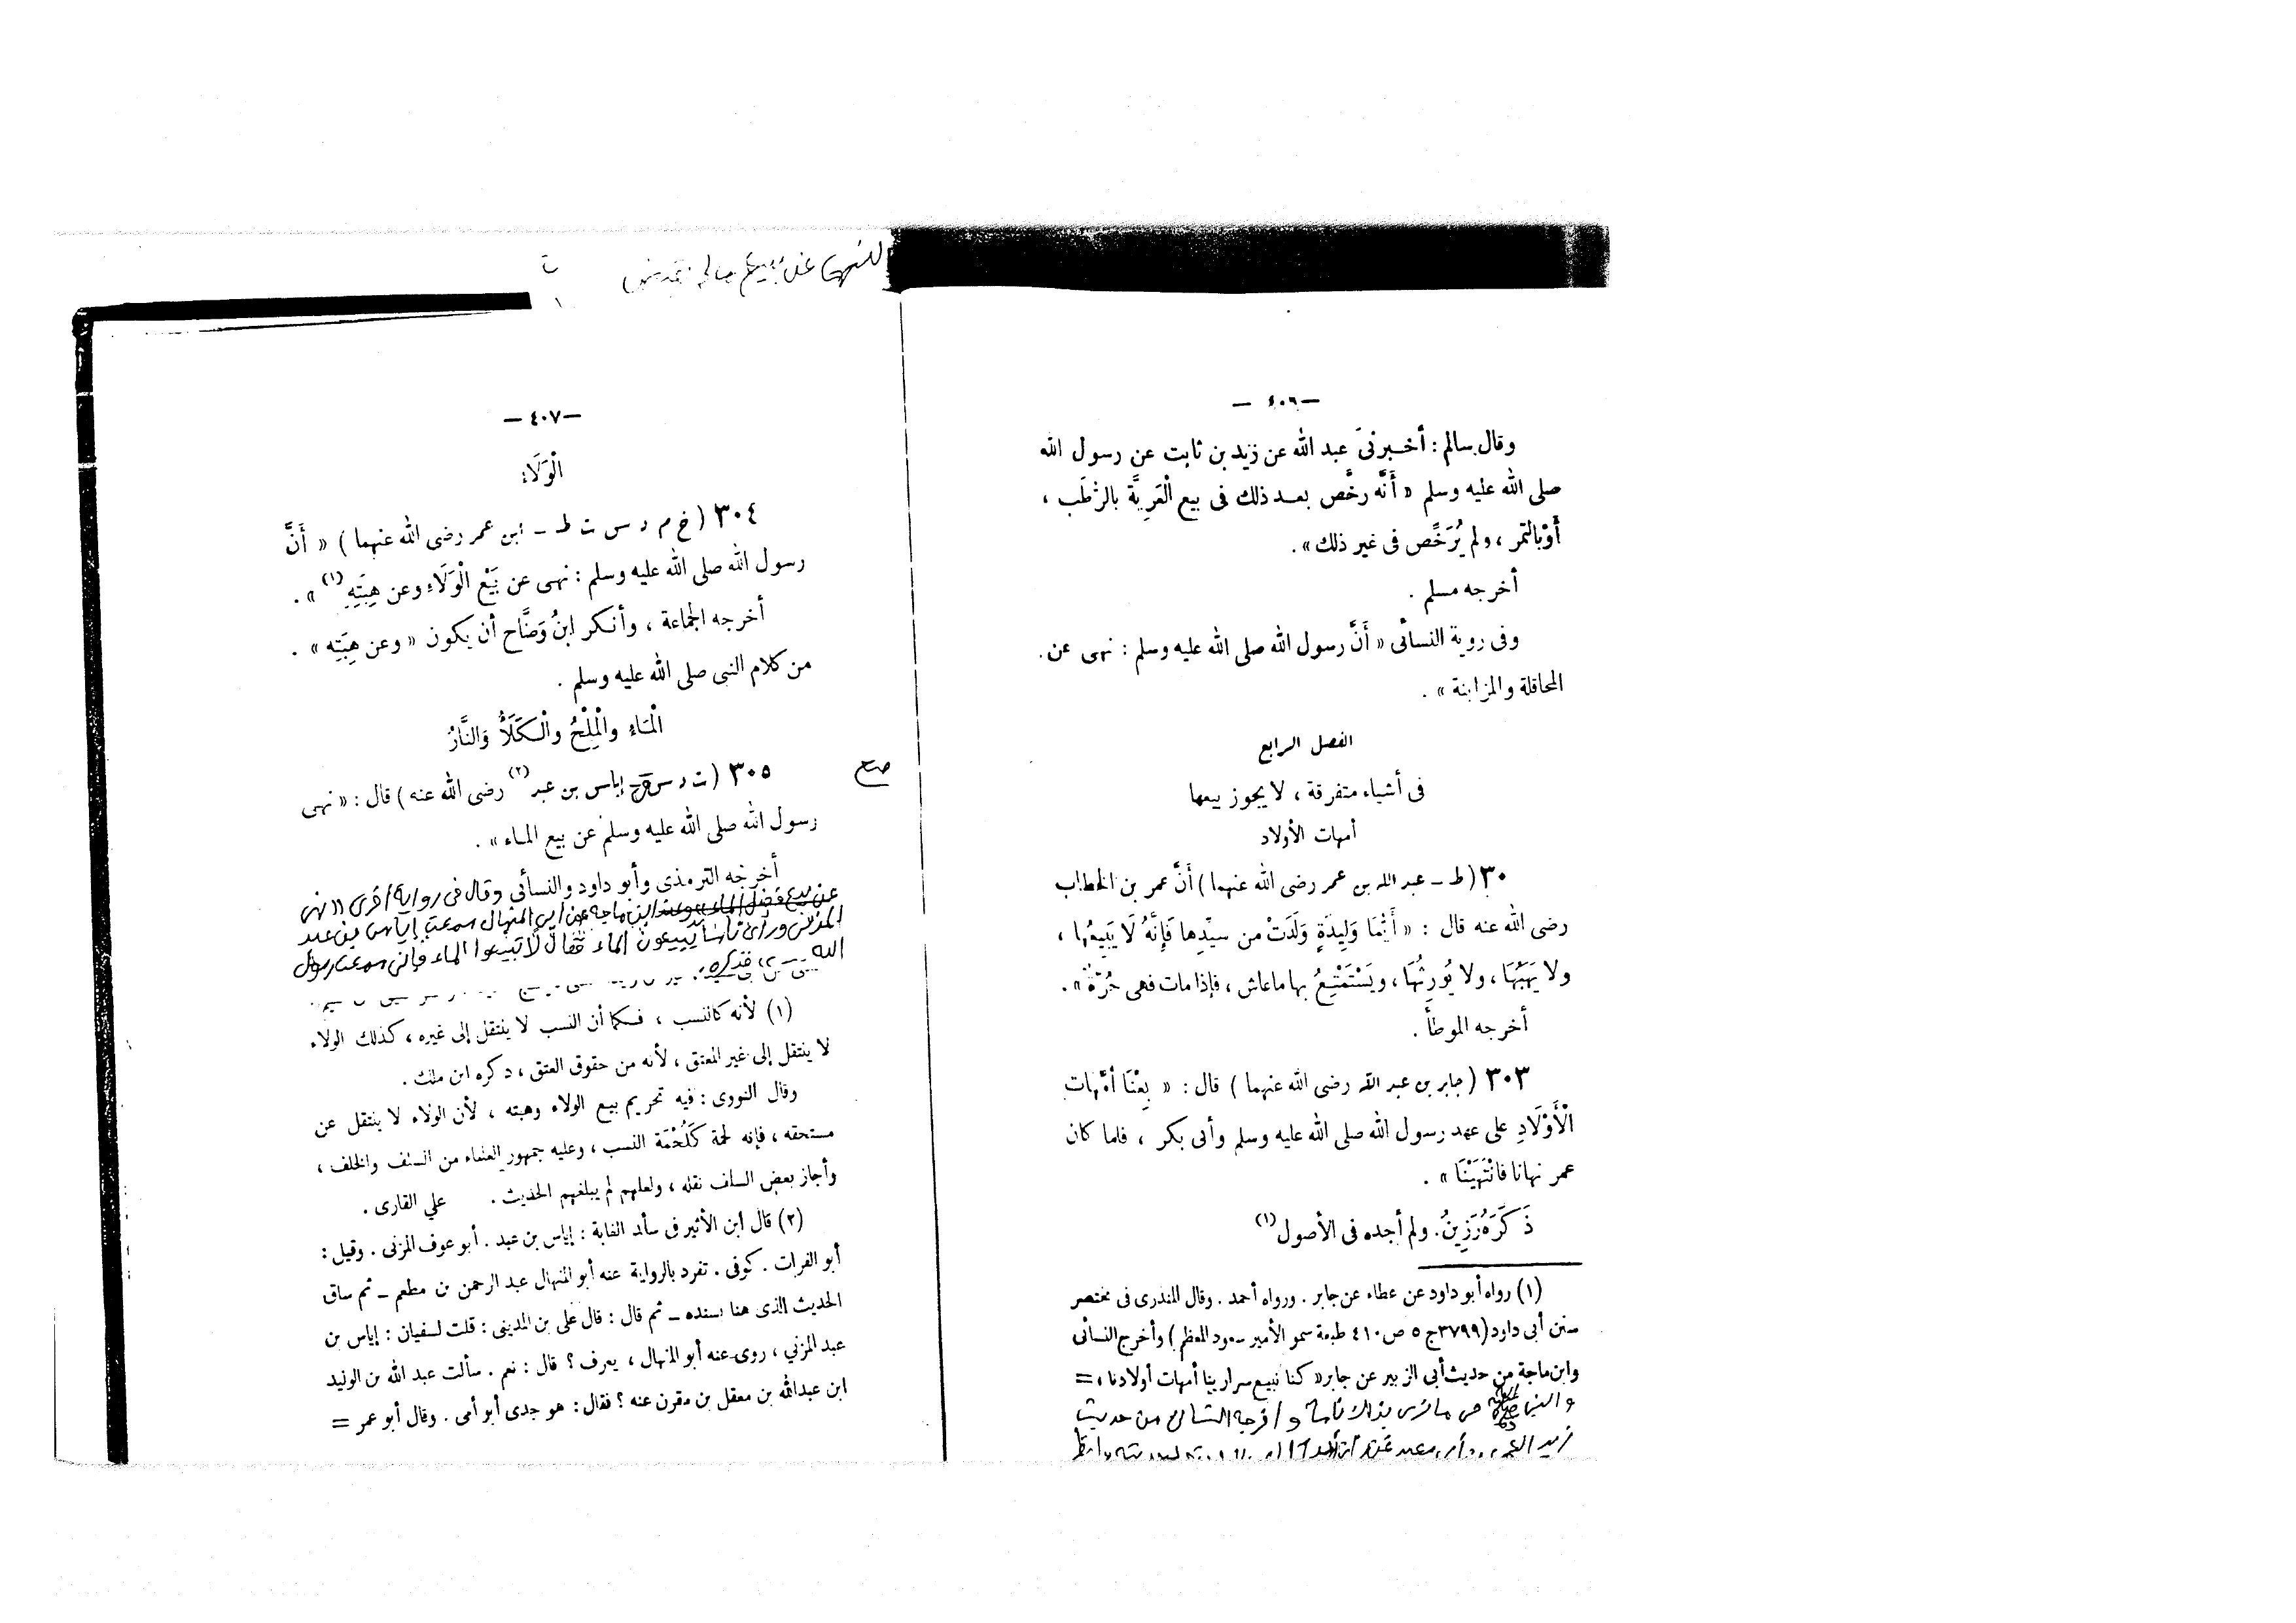 — ٤٠٦ —
وقال سالم : أخبرنى عبد الله عن زيد بن ثابت عن رسول الله
صلى الله عليه وسلم « أَنَّه رخَّص بعد ذلك فى بيع الْعَرِيَّة بالرُّطَب ،
أوْ بالتمر ، ولم يُرَخِّص فى غير ذلك » .
أخرجه مسلم .
وفى روية النسائى « أَنَّ رسول الله صلى الله عليه وسلم : نهى عن .
المحاقلة والمزابنة » .
الفصل الرابع
فى أشياء متفرقة ، لا يجوز بيعها
أمهات الأولاد
٣٠ ( ط – عبد الله بن عمر رضى الله عنهما ) أَنَّ عمر بن الخطاب
رضى الله عنه قال : « أَيُّمَا وَلِيدَةٍ وَلَدَتْ من سيِّدِها فَإِنَّهُ لَا يَبِيعُها ،
ولا يَهَبُهَا ، ولا يُورِثُهَا ، ويَسْتَمْتِعُ بها ماعاش ، فإذا مات فهى حُرَّةٌ » .
أخرجه الموطأ .
٣٠٣ ( جابر بن عبد الله رضى الله عنهما ) قال : « بِعْنَا أمَّهات
الْأَوْلَادِ على عهد رسول الله صلى الله عليه وسلم وأبى بكر ، فلما كان
عمر نهانا فانْتَهَيْنَا » .
ذَكَرَهُ رَزِينُ . ولم أجده فى الأصول (١)
(١) رواه أبو داود عن عطاء عن جابر . ورواه أحمد . وقال المنذرى فى مختصر
سنن أبى داود (٣٧٩٩ ج ٥ ص ٤١٠ طبعة سمو الأمير سعود المعظم ) وأخرج النسائى
وابن ماجة من حديث أبى الزبير عن جابر « كنا نبيع سرارينا أمهات أولادنا ، =
والنبي صلى الله عليه وسلم حى ما نرى بذلك بأسا وأخرجه النسائى من حديث
زيد العمى
النهى عن بيع مالم يقبض
— ٤٠٧ —
الْوَلَاء
٣٠٤ ( خ م د س ت ط – ابن عمر رضى الله عنهما ) « أَنَّ
رسول الله صلى الله عليه وسلم : نهى عن بَيْع الْوَلَاءِ وعن هِبَتِهِ (١) » .
أخرجه الجماعة ، وأنكر ابنُ وَضَّاح أن يكون « وعن هِبَتِه » .
من كلام النبى صلى الله عليه وسلم .
الْمَاءِ والْمِلْحُ والْكَلَأُ وَالنَّارُ
صح
٣٠٥ ( ت د س – إياس بن عبد (٢) رضى الله عنه ) قال : « نهى
رسول الله صلى الله عليه وسلم عن بيع الماء » .
أخرجه الترمذى وأبو داود والنسائى وقال فى رواية أخرى « نهى
عن بيع فضل الماء » وعند ابن ماجه عن أبى المنهال سمعت إياس بن عبد
المزنى ورأى ناسا يبيعون الماء فقال لا تبيعوا الماء فإنى سمعت رسول
الله فذكره .
(١) لأنه كالنسب ، فكما أن النسب لا ينتقل إلى غيره ، كذلك الولاء
لا ينتقل إلى غير المعتق ، لأنه من حقوق العتق ، ذكره ابن ملك .
وقال النووى : فيه تحريم بيع الولاء وهبته ، لأن الولاء لا ينتقل عن
مستحقه ، فإنه لحمة كَلُحْمَة النسب ، وعليه جمهور العلماء من السلف والخلف ،
وأجاز بعض السلف نقله ، ولعلهم لم يبلغهم الحديث . علي القارى .
(٢) قال ابن الأثير فى سأسد الغابة : إياس بن عبد . أبو عوف المزنى . وقيل :
أبو الفرات . كوفى . تفرد بالرواية عنه أبو المنهال عبد الرحمن بن مطعم – ثم ساق
الحديث الذى هنا بسنده – ثم قال : قال على بن المدينى : قلت لسفيان : إياس بن
عبد المزني ، روى عنه أبو المنهال ، يعرف ؟ قال : نعم . سألت عبد الله بن الوليد
ابن عبد الله بن معقل بن مقرن عنه ؟ فقال : هو جدى أبو أمى . وقال أبو عمر =